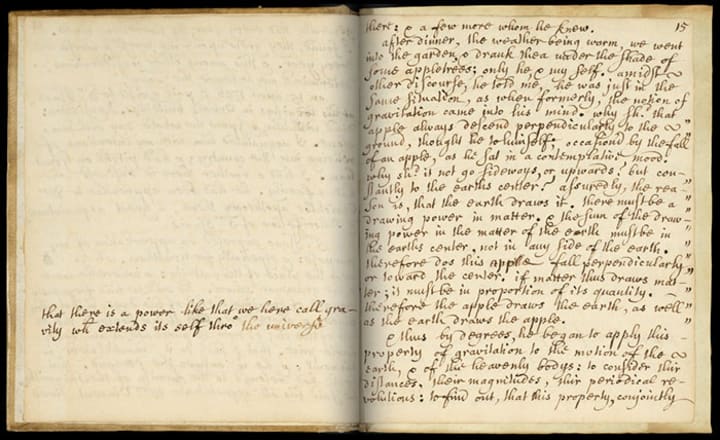 that there is a power like that we here call gra-
vity wh extends its self thro the universe
15
there: & a few more whom he knew.
after dinner, the weather being warm, we went
into the garden, & drank thea under the shade of
some appletrees; only he, & my self. amidst
other discourse, he told me, he was just in the
same situation, as when formerly, the notion of
gravitation came into his mind. why sh. that
apple always descend perpendicularly to the
ground, thought he to himself; occasion'd by the fall
of an apple, as he sat in a contemplative mood.
why sh. it not go sideways, or upwards? but con-
stantly to the earths center? assuredly, the rea-
son is, that the earth draws it. there must be a
drawing power in matter. & the sum of the draw-
ing power in the matter of the earth must be in
the earths center, not in any side of the earth.
therefore dos this apple fall perpendicularly
or toward the center. if matter thus draws mat-
ter; it must be in proportion of its quantity.
therefore the apple draws the earth, as well
as the earth draws the apple.
& thus by degrees, he began to apply this
property of gravitation to the motion of the
earth, & of the heavenly bodys: to consider thir
distances, their magnitudes, thir periodical re-
volutions: to find out, that this property, conjointly